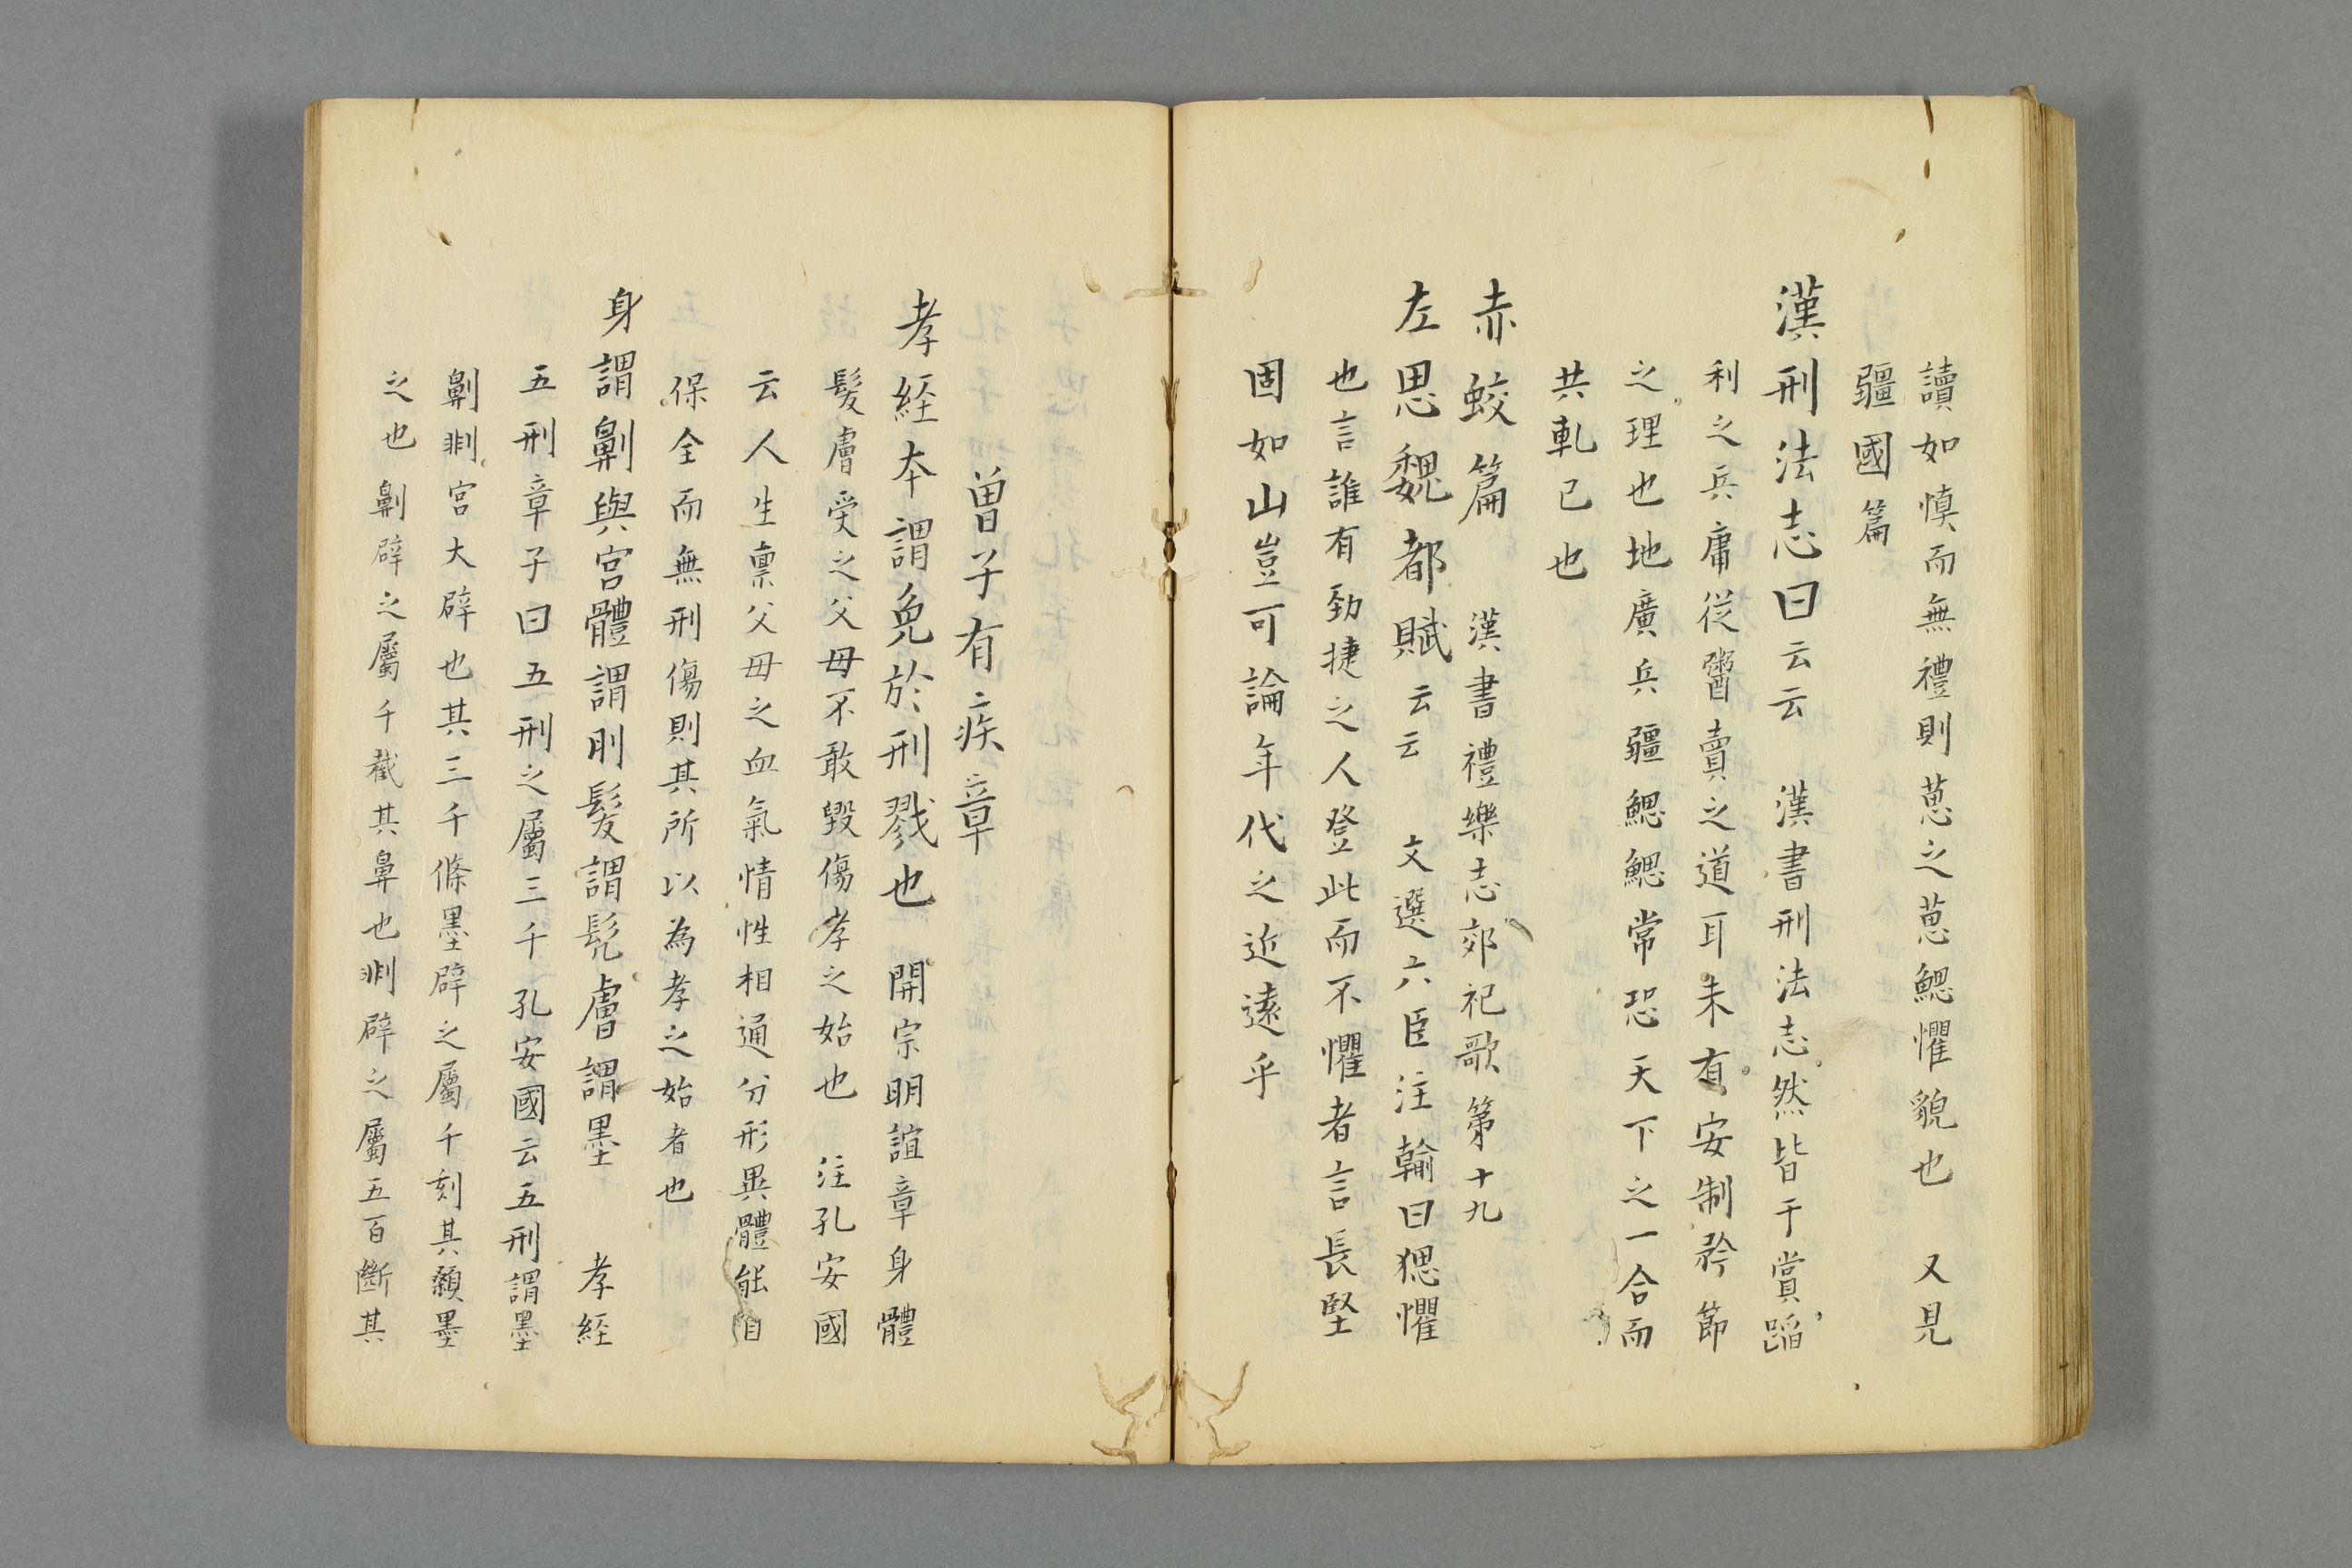 讀如慎而無禮則葸之葸鰓懼貌也　又見
彊國篇
漢刑法志曰云云　漢書刑法志然皆干賞蹈
利之兵庸従鬻賣之道耳未有安制矜節
之理也地廣兵彊鰓鰓常恐天下之一合而
共軋已也
赤蛟篇　漢書禮樂志郊祀歌第十九
左思魏都賦云云　文選六臣注翰曰㥓懼
也言誰有勁捷之人登此而不懼者言長堅
固如山豈可論年代之近遠乎
曽子有疾章
孝経本謂免於刑戮也　開宗明誼章身體
髮膚受之父母不敢毀傷孝之始也　注孔安國
云人生稟父母之血氣情性相通分形異體能自
保全而無刑傷則其所以為孝之始者也
身謂劓與宮體謂刖髮謂髡膚謂墨　孝経
五刑章子曰五刑之屬三千孔安國云五刑謂墨
劓剕宮大辟也其三千條墨辟之屬千刻其顙墨
之也劓辟之屬千截其鼻也剕辟之屬五百斷其